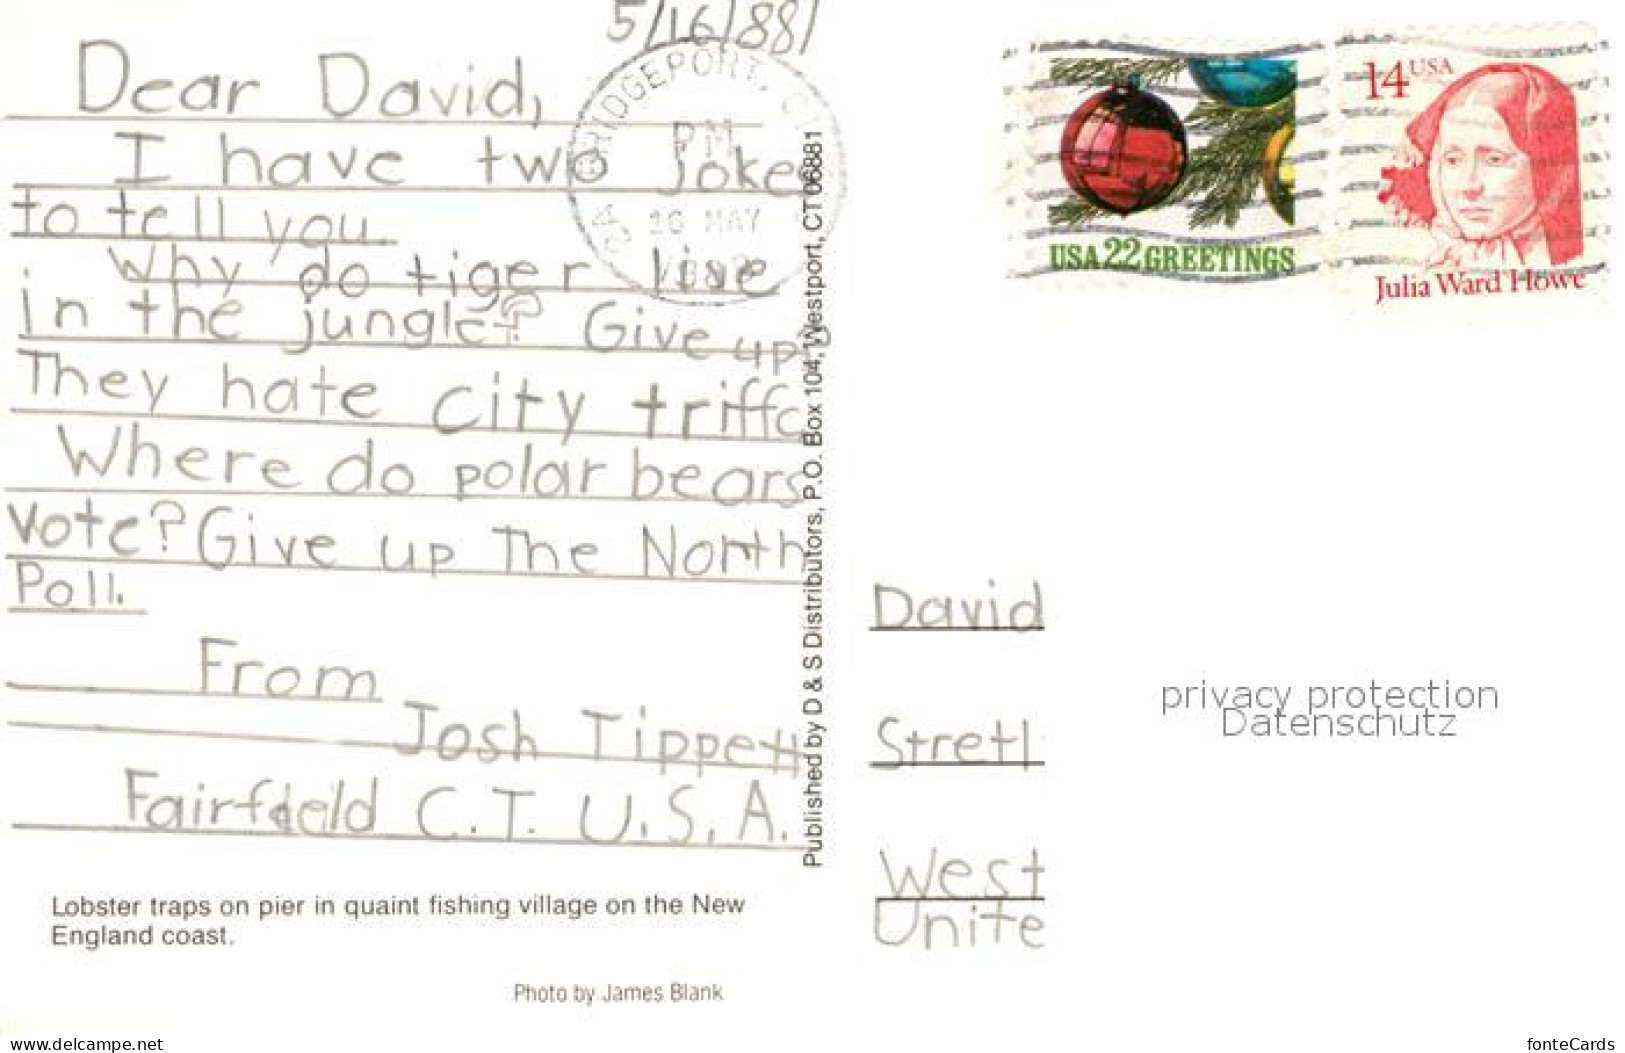 5/16/88
Dear David,
I have two joke
to tell you.
Why do tiger live
in the jungle? Give up?
They hate city triffc
Where do polar bears
vote? Give up The North
Poll.
From
Josh Tippett
Fairfield C.T. U.S.A.
Lobster traps on pier in quaint fishing village on the New
England coast.
Photo by James Blank
Published by D & S Distributors, P.O. Box 104, Westport, CT 06881
BRIDGEPORT, CT
PM
16 MAY
USA 22 GREETINGS
14 USA
Julia Ward Howe
David
Stretl
West
Unite
privacy protection
Datenschutz
www.delcampe.net
fonteCards